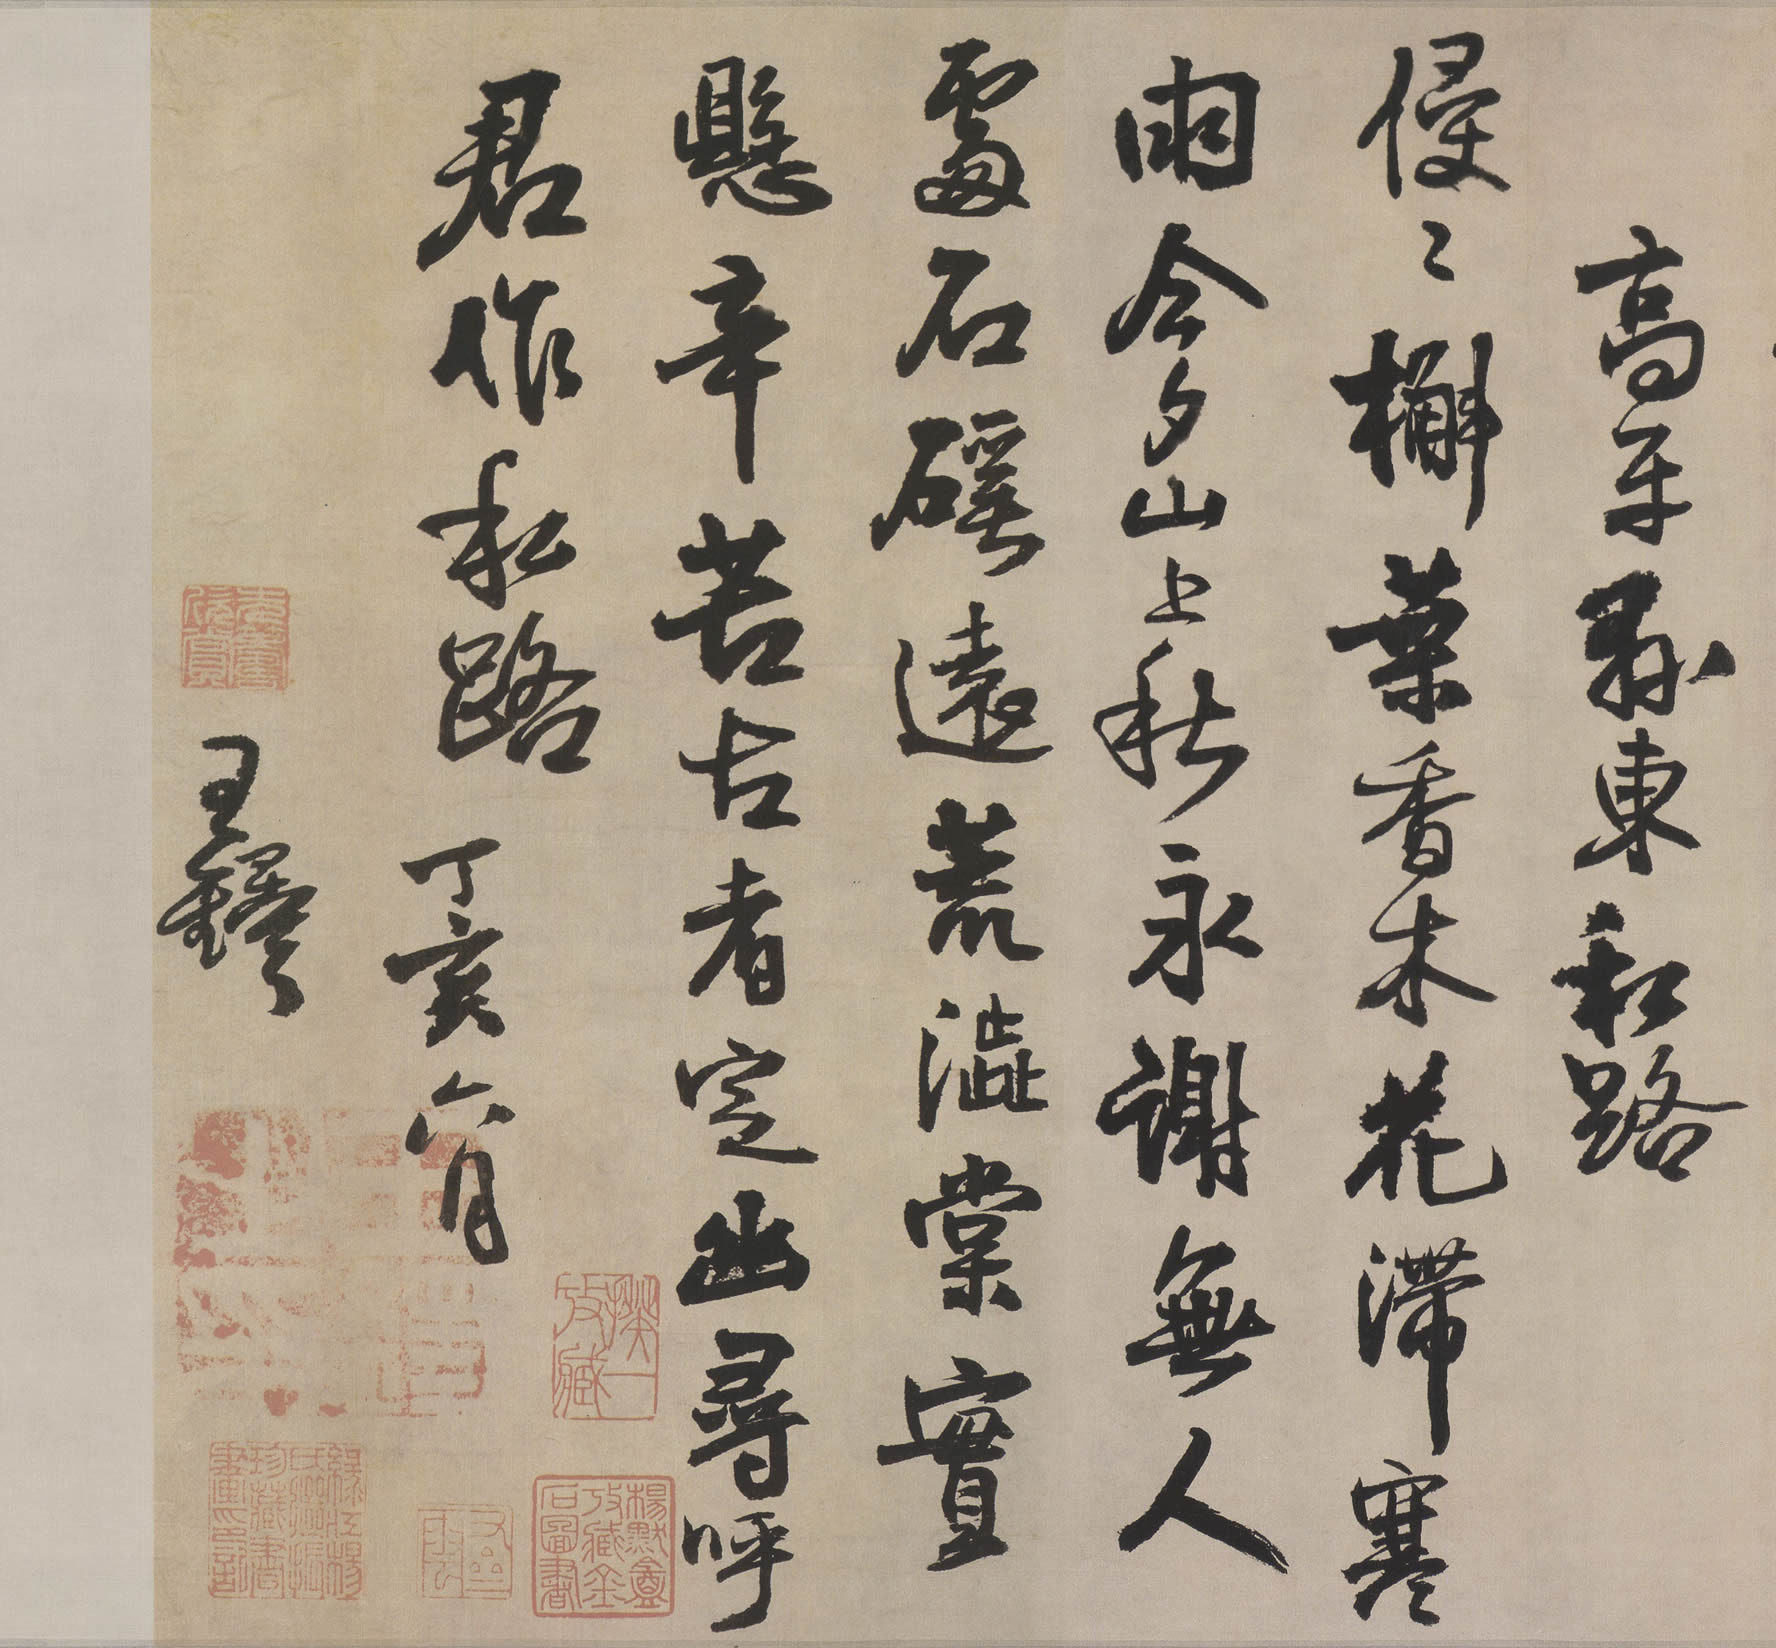 高平縣東私路
侵〻槲葉香木花滯寒
雨今夕山上秋永謝無人
處石磎遠荒澁棠實
懸辛苦古者定幽尋呼
君作私路丁亥六月
王鐸